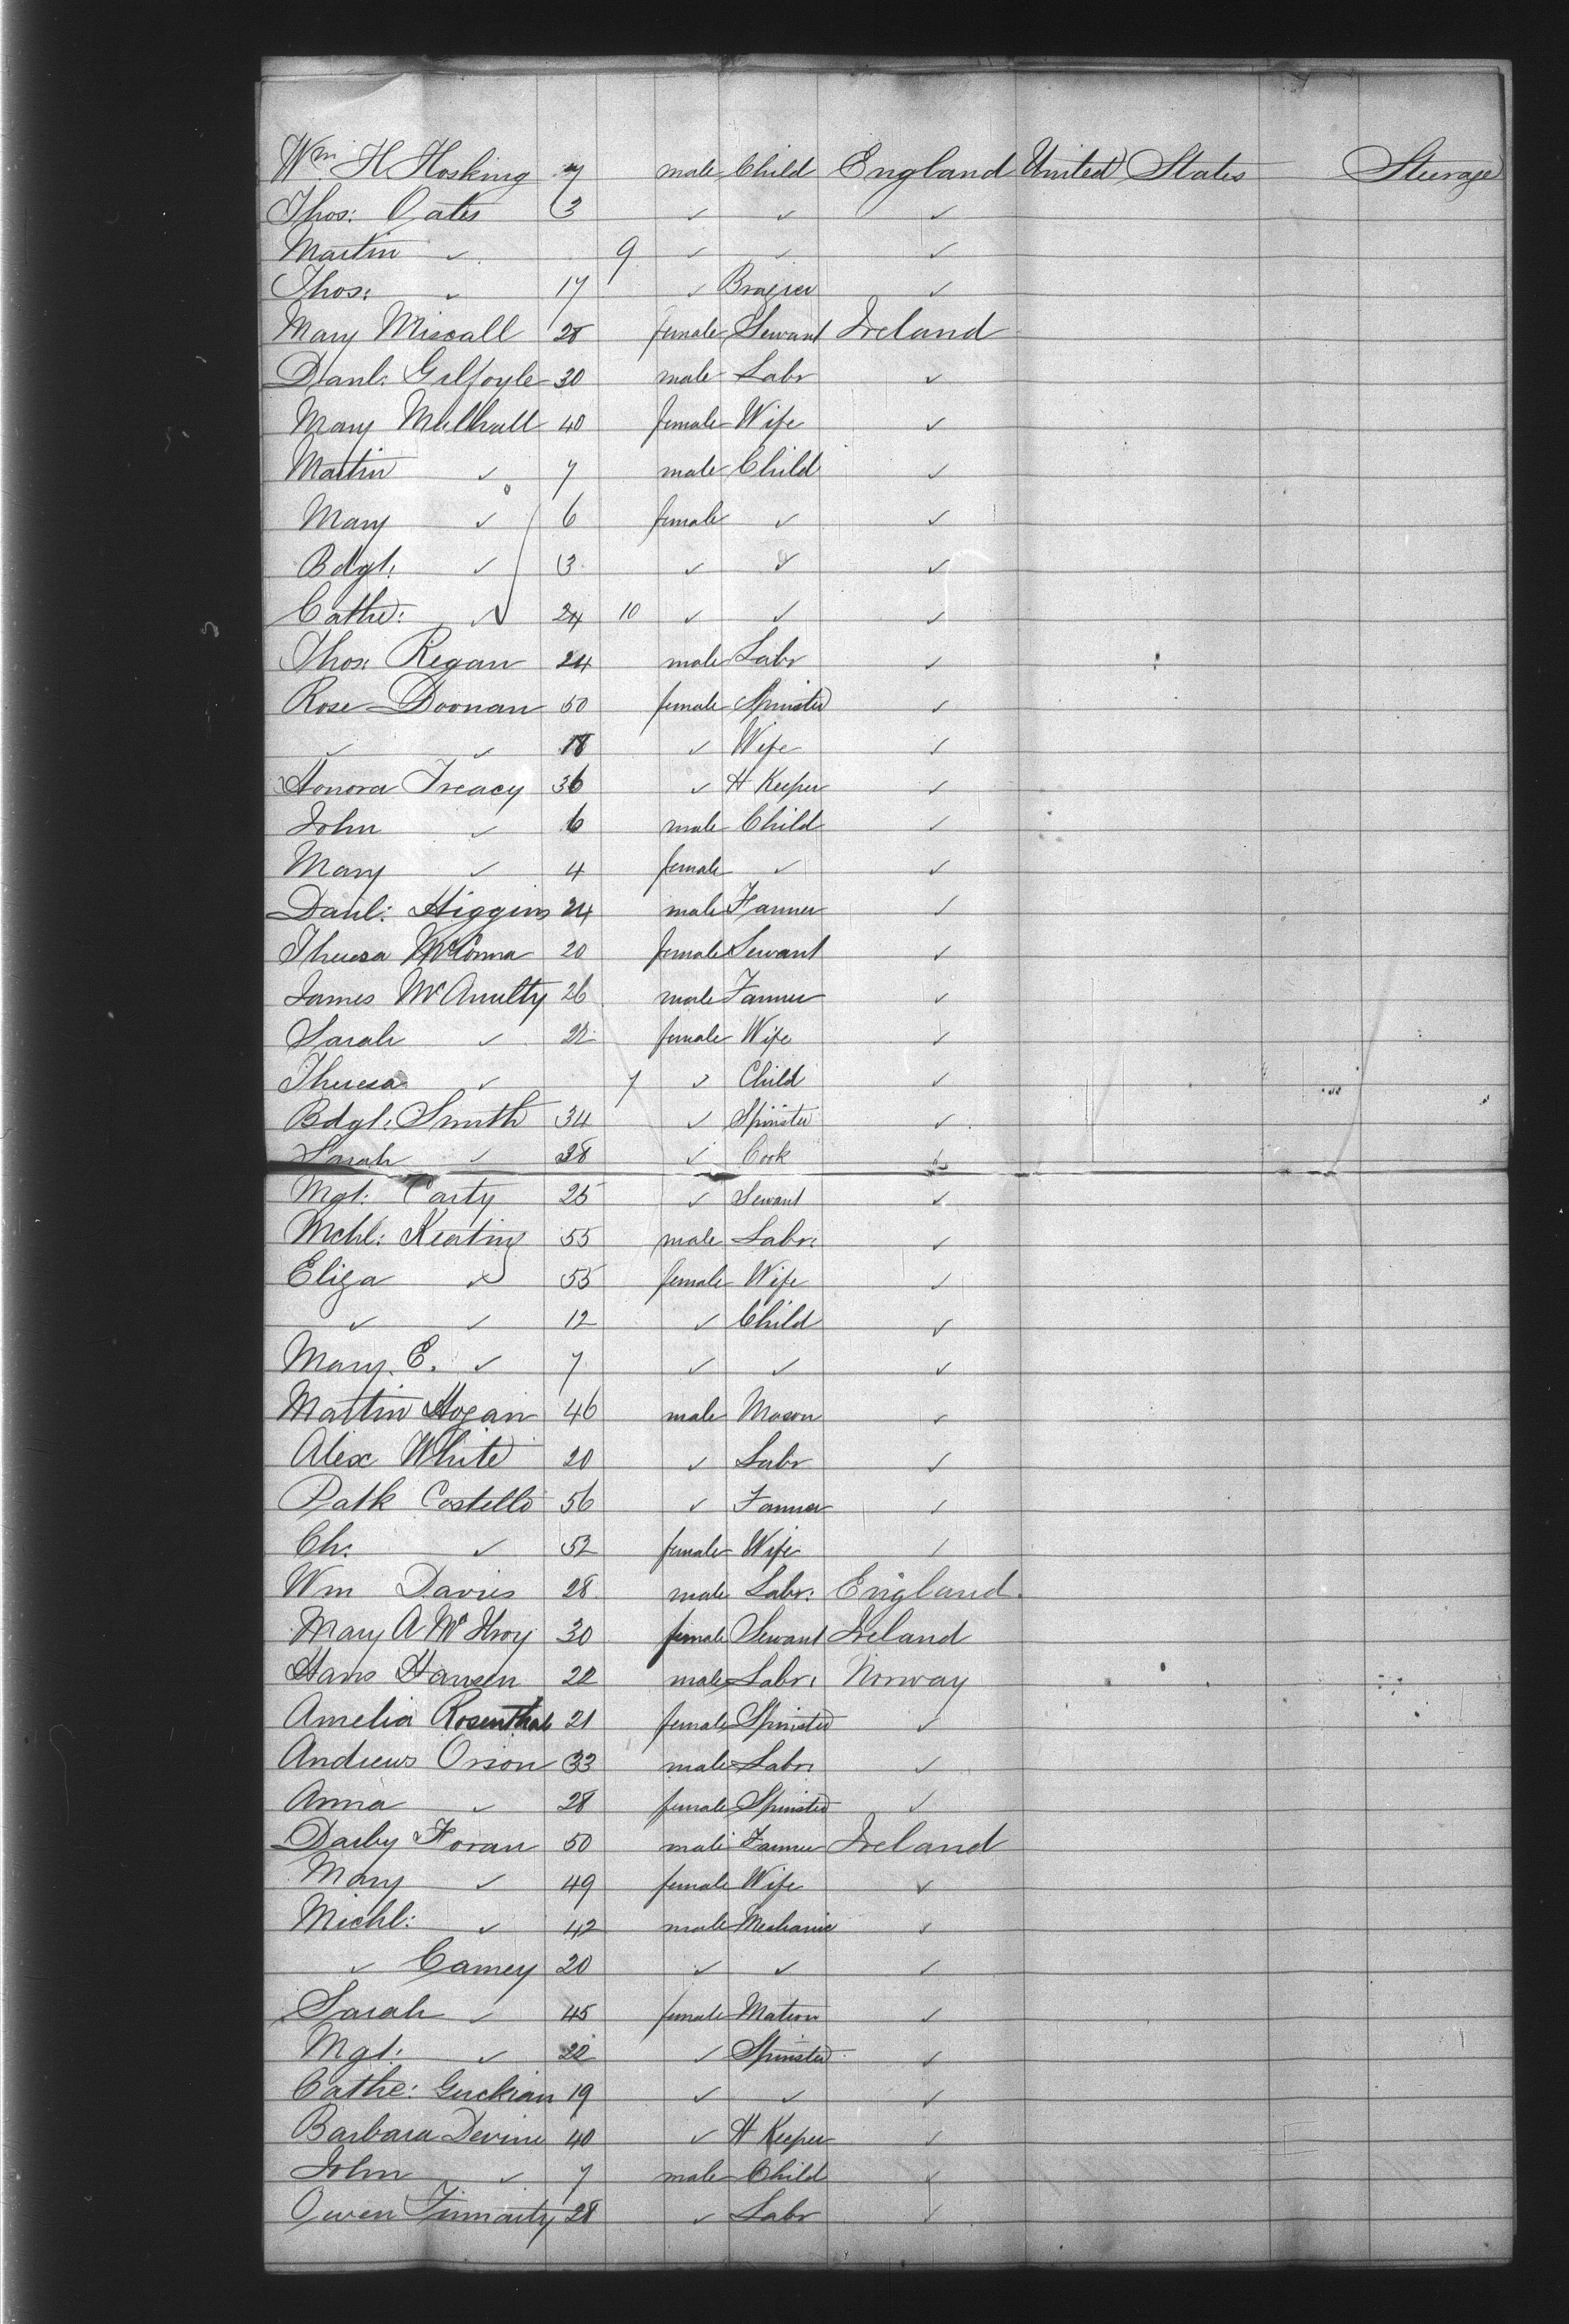 Wm H Hosking 7 male Child England United States Steerage
Thos: Oates 3 ✓ ✓ ✓
Martin ✓ 9 ✓ ✓ ✓
Thos: ✓ 17 ✓ Brazier ✓
Mary Miscall 28 female Servant Ireland
Danl: Gilfoyle 30 male Labr ✓
Mary Mulhall 40 female Wife ✓
Martin ✓ 7 male Child ✓
Mary ✓ 6 female ✓ ✓
Bdgt: ✓ 3 ✓ ✓ ✓
Cathe: ✓ 24 10 ✓ ✓ ✓
Thos: Regan 24 male Labr ✓
Rose Doonan 50 female Spinster ✓
✓ ✓ 18 ✓ Wife ✓
Honora Treacy 36 ✓ H Keeper ✓
John ✓ 6 male Child ✓
Mary ✓ 4 female ✓ ✓
Danl: Higgins 24 male Farmer ✓
Theresa 20 female Servant ✓
James McAnulty 26 male Farmer ✓
Sarah ✓ 22 female Wife ✓
Theresa ✓ 7 ✓ Child ✓
Bdgt: Smith 34 ✓ Spinster ✓
Sarah ✓ 28 ✓ Cook ✓
Mgt: Carty 25 ✓ Servant ✓
Mchl: Keating 55 male Labr: ✓
Eliza ✓ 55 female Wife ✓
✓ ✓ 12 ✓ Child ✓
Mary E. ✓ 7 ✓ ✓ ✓
Martin Hogan 46 male Mason ✓
Alex White 20 ✓ Labr ✓
Patk Costello 56 ✓ Farmer ✓
Ch: ✓ 52 female Wife ✓
Wm Davies 28 male Labr: England
Mary A McIlroy 30 female Servant Ireland
Hans Hansen 22 male Labr: Norway
Amelia Rosenthal 21 female Spinster ✓
Andrews Orson 33 male Labr: ✓
Anna ✓ 28 female Spinster ✓
Darby Horan 50 male Farmer Ireland
Mary ✓ 49 female Wife ✓
Michl: ✓ 42 male Mechanic ✓
✓ Carney 20 ✓ ✓ ✓
Sarah ✓ 45 female Matron ✓
Mgt: ✓ 22 ✓ Spinster ✓
Cathe: Guckian 19 ✓ ✓ ✓
Barbara Devine 40 ✓ H Keeper ✓
John ✓ 7 male Child ✓
Owen Finnarty 28 ✓ Labr ✓